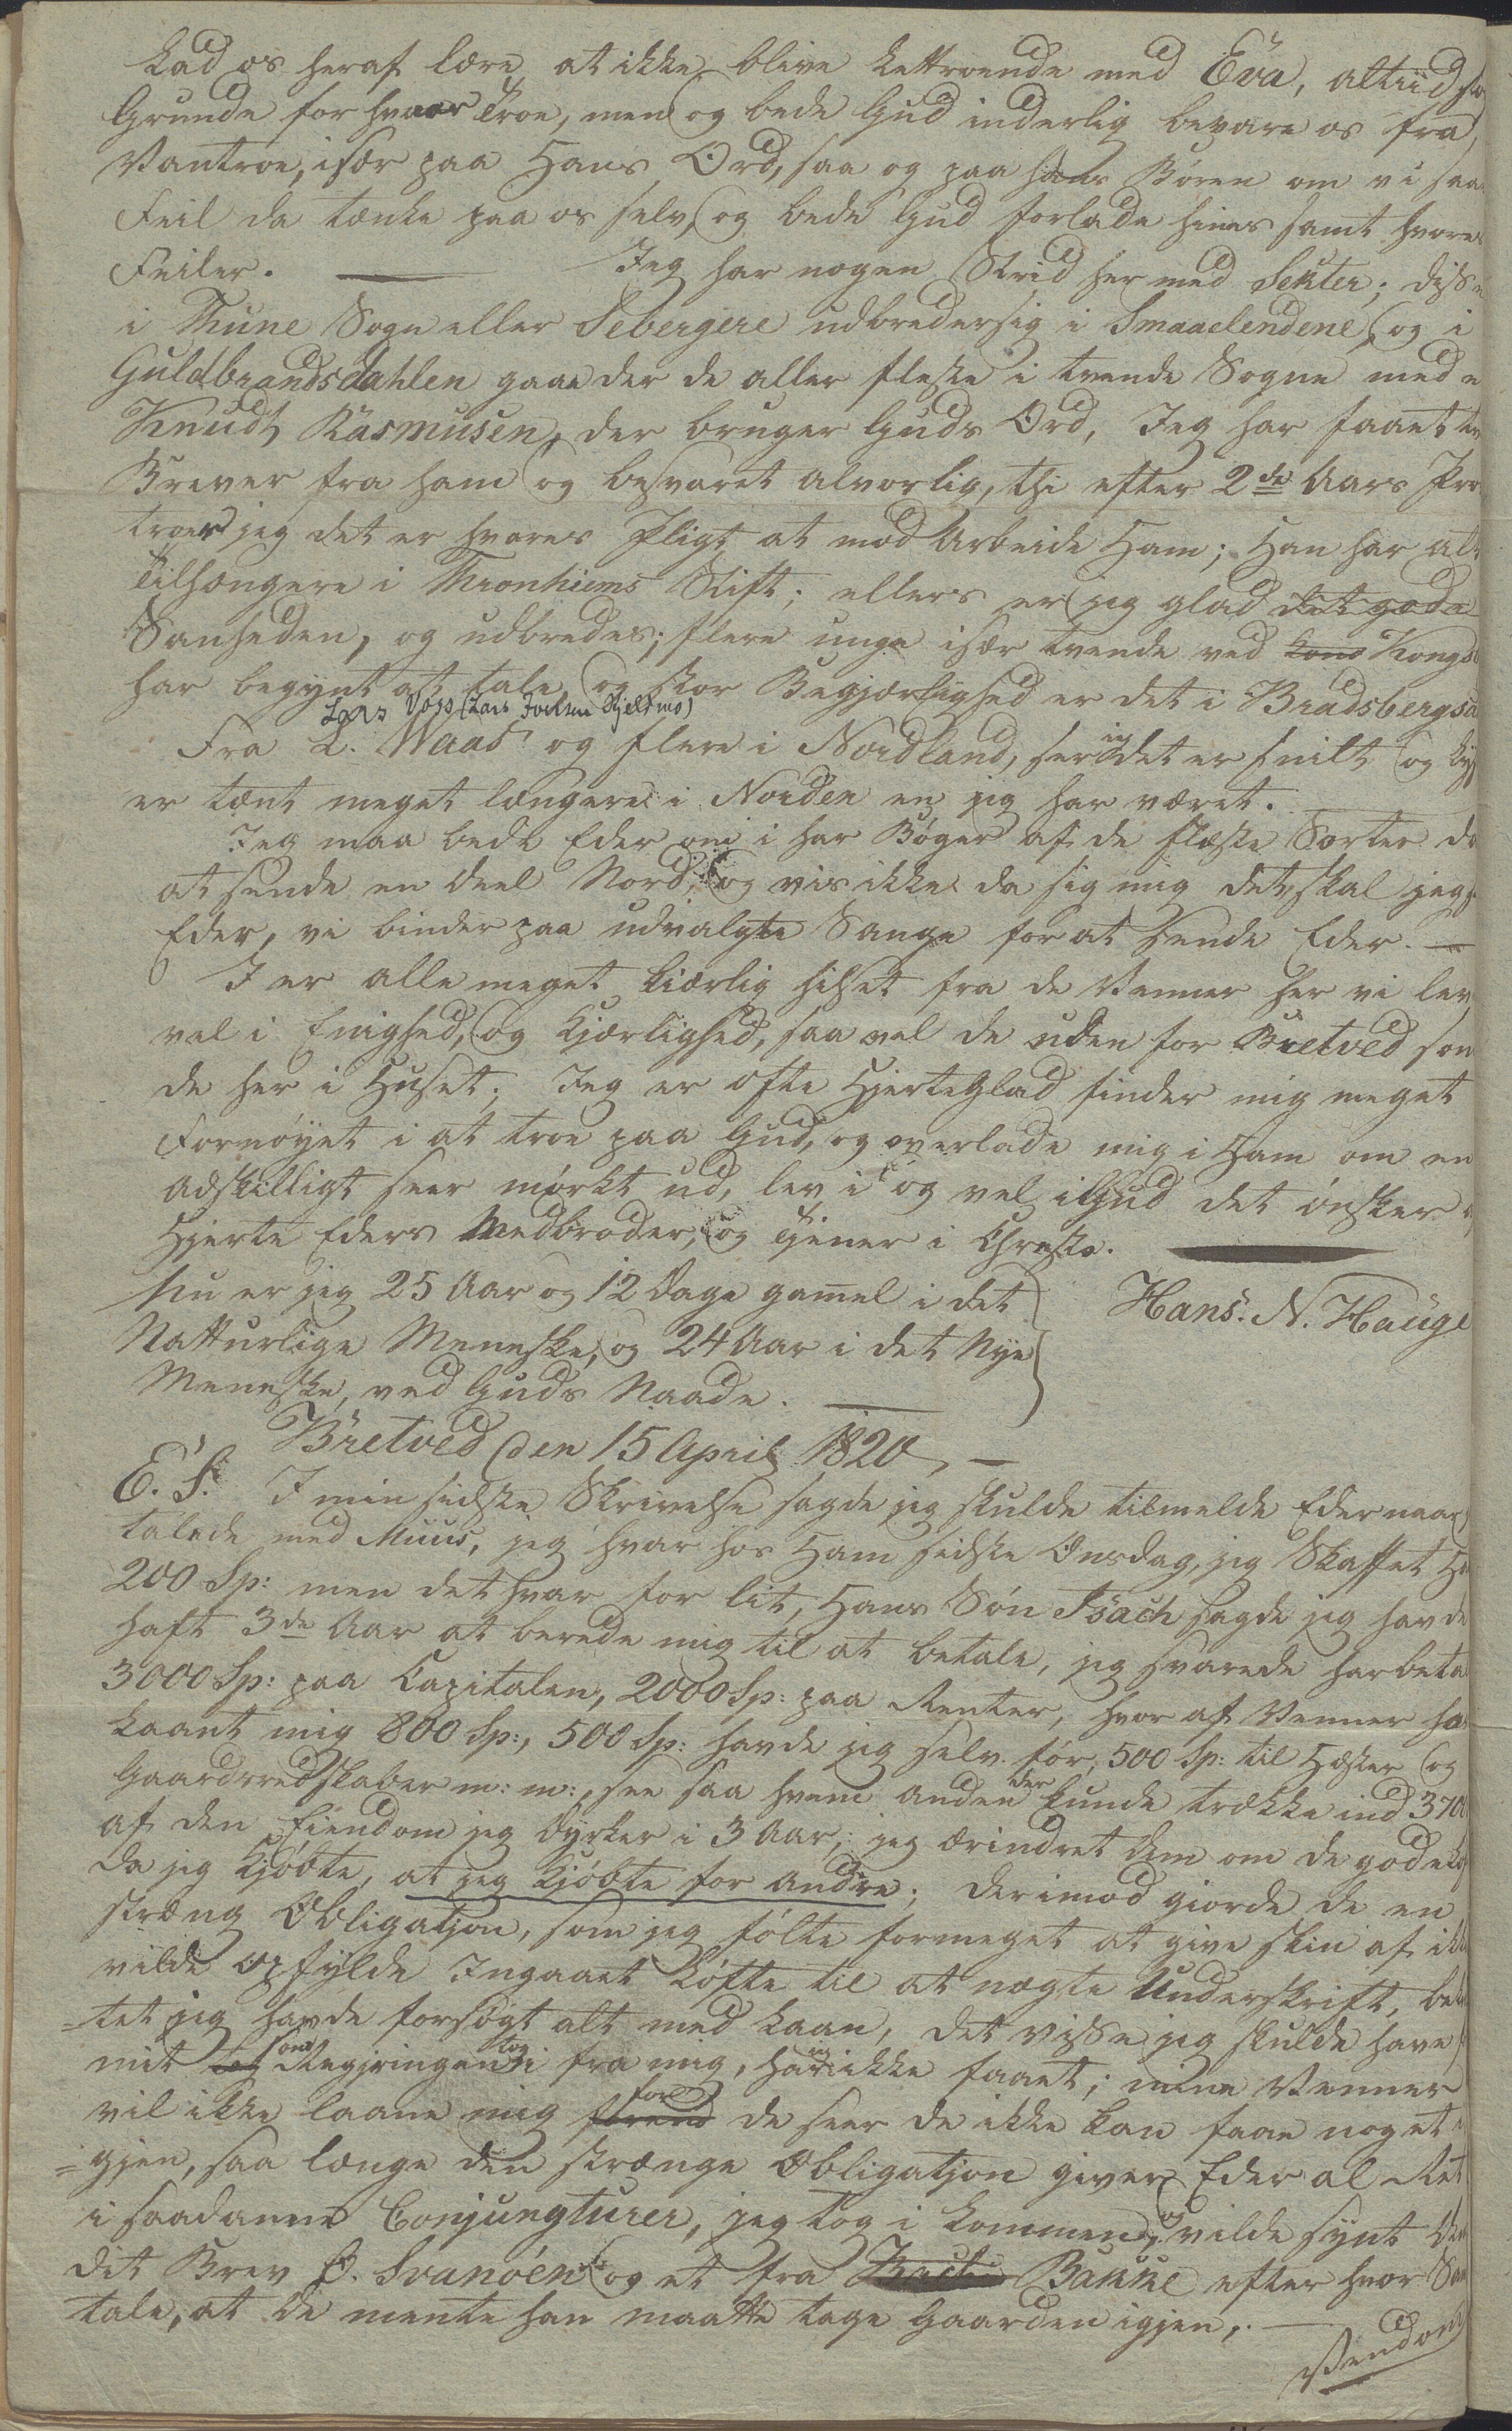 Lad os heraf lære, at ikke blive Lettroende med Eva, altiid
Grunde for hvaor Troe, men og bede Gud inderlig bevare os fra
Vantroe, især paa Hans Ord, saa og paa hans Børen om vi saa
Feil da tænke paa os selv, og bede Gud forlade hines samt hvores
Feiler. — Jeg har nogen Strid her med Sekter; disse
i Thune Sogn eller Sebergere udbredersig i Smaaelendene, og i
Guldbrandsdahlen gaae der de aller fleste i tvende Sogne med
Knudt Rasmusen, der bruger Guds Ord, Jeg har faaet
Brever fra ham og besvaret alvorlig, thi efter 2de Aars
troer jeg det er hvores Pligt at mod Arbeide Ham; Han har alt
Tilhængere i Thronhiems Stift; ellers er jeg glad det gode
Sanheden, og udbredes; flere unge især tvende ved Kong Kongs
har begynt at tale, og stor Begjærlighed er det i Bradsbergs
Lars Voss (Lars Jocksen Kjeldmo)
Fra L. Waas og flere i Nordland, ser jeg det er snilt og
er tænt meget længere i Norden en jeg har været.
Jeg maa bede Eder om i har Bøger af de fleste Sorter da
at sende en deel Nord, og vis ikke da sig mig det, skal jeg
Eder, vi binder paa udvalgte Sange for at sende Eder. —
I er alle meget kiærlig hilset fra de Venner her vi lev
vel i Enighed, og Kjærlighed, saa vel de uden for Bretved som
de her i Huset. Jeg er ofte HjerteGlad finder mig meget
Fornøyet i at troe paa Gud, og overlade mig i Ham om en
Adskilligt seer mørkt ud, lev i og vel i Gud det ønsker
Hjerte Eders Medbroder, og Tjener i Christo.
Nu er jeg 25 Aar og 12 Dage gamel i det
Natturlige Menneske, og 24 Aar i det Nye
Menneske, ved Guds Naade.
Hans. N. Hauge
Bretved den 15 April 1820, —
E. S. I min sidste Skrivelse sagde jeg skulde tilmelde Eder naar
talede med Muus, jeg hvar hos Ham sidste Onsdag, jeg Skaffet
200 Sp: men det hvar for lit, Hans Søn Isach sagde jeg havde
haft 3de Aar at berede mig til at betale, jeg svarede har beta
3000 Sp: paa Capitalen, 2000 Sp: paa Renter, hvor af Venner ha
Laant mig 800 Sp:, 500 Sp: havde jeg selv før, 500 Sp: til Hæster og
Gaardsredskaber m: m:, see saa hvem anden der kunde trække ind 370
af den Eiendom jeg dyrker i 3 Aar; jeg erindret dem om de gode
da jeg Kjøbte, at jeg Kjøbte for andre; derimod giorde de en
stræng Obligatjon, som jeg følte formeget at give skin af ikke
vilde opfylde Ingaaet Løfte til at nægte Underskrift,
=tet jeg havde forsøgt alt med Laan, det visse jeg skulde have
mit som Regjeringen tog i fra mig, har jeg ikke faaet; mine Venner
vil ikke laane mig forend for de seer de ikke kan faae noget i
=gjen, saa længe den strænge Obligatjon giver Eder al Ret
i saadanne Conjungturer, jeg tog i Lommen, og vilde synt
dit Brev O. Svanöen og et fra Bakke efter hvor
tale, at de mente han maatte tage Gaarden igjen, —
Vend om